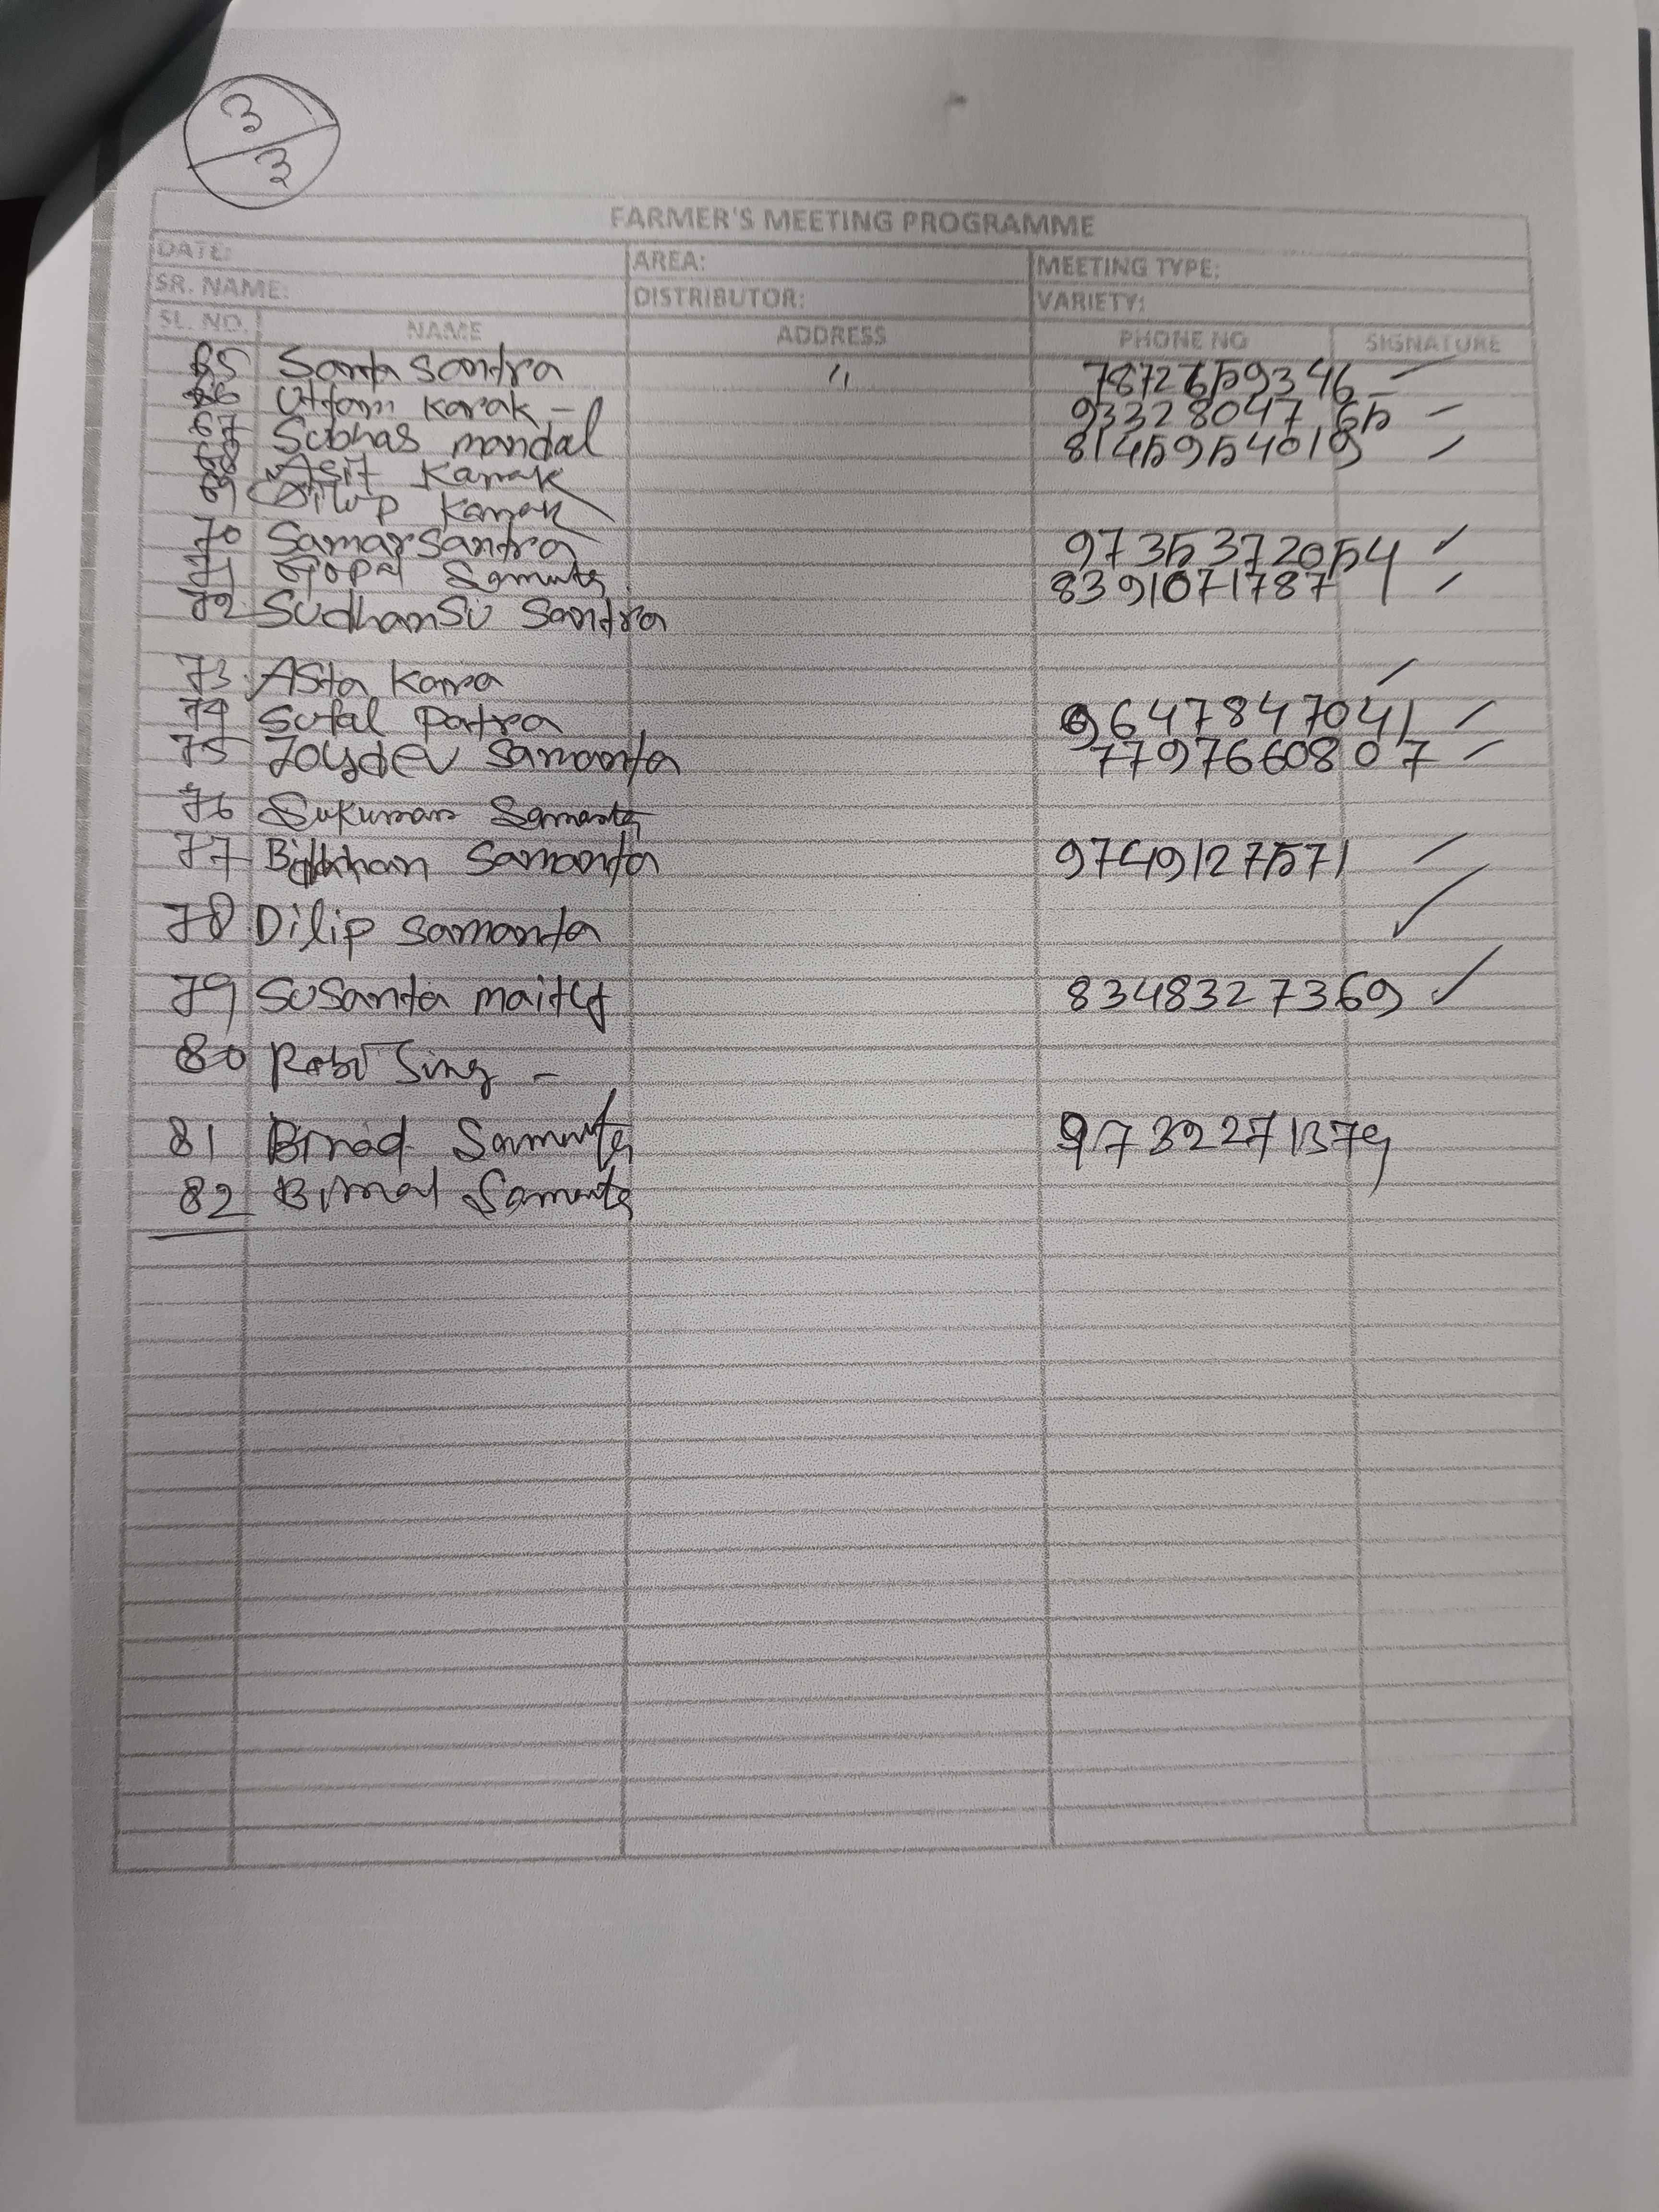 3
3
FARMER'S MEETING PROGRAMME
DATE: AREA: MEETING TYPE:
SR. NAME: DISTRIBUTOR: VARIETY:
SL. NO. NAME ADDRESS PHONE NO SIGNATURE
65 Santa Santra " 7872659346
66 Uttam Karak - 9332804765
67 Subhas mandal 8145954019
68 Asit Karrak
69 Dilip Karrak
70 Samar Santra 9735372054
71 Gopal Samanta 8391071787
72 Sudhansu Santra
73 Asta Karra
74 Sufal Patra 9647847041
75 Joydev Samanta 7797660807
76 Sukumar Samanta
77 Samanta 9749127571
78 Dilip Samanta
79 Susanta maity 8348327369
80 Robi Sing -
81 Binod Samanta
82 Bimal Samanta